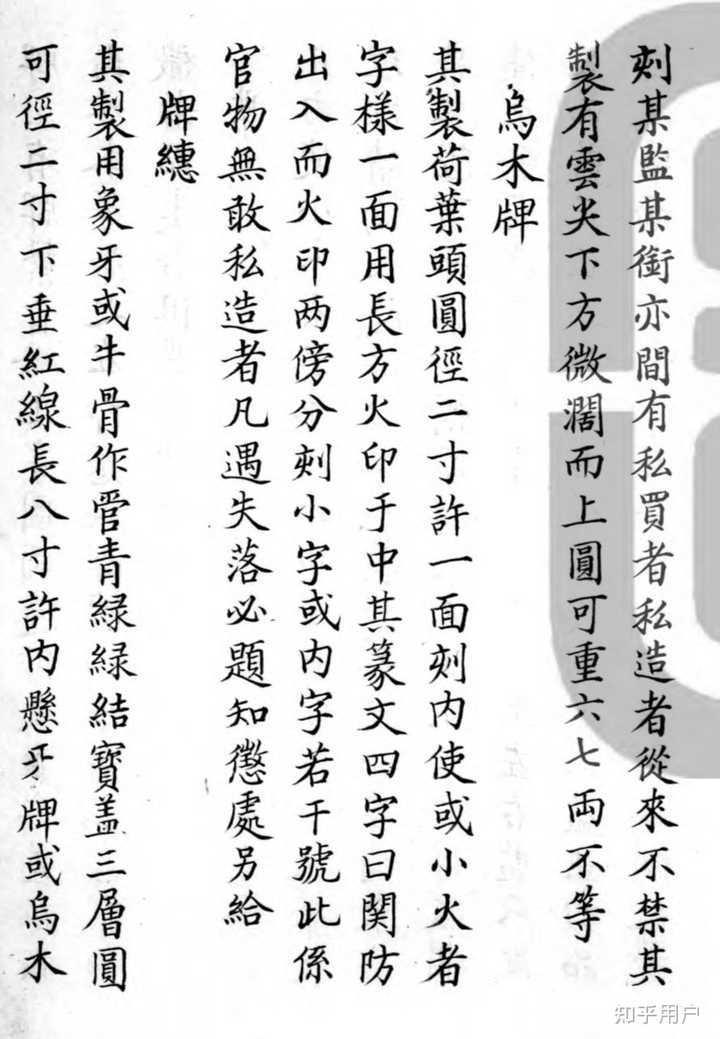 刻某監某銜亦間有私買者私造者從來不禁其
製有雲尖下方微濶而上圓可重六七兩不等
烏木牌
其製荷葉頭圓徑二寸許一面刻内使或小火者
字様一面用長方火印于中其篆文四字曰関防
出入而火印两傍分刻小字或内字若干號此係
官物無敢私造者凡遇失落必題知懲處另給
牌繐
其製用象牙或牛骨作管青緑緑結寳盖三層圓
可徑二寸下垂紅線長八寸許内懸牙牌或烏木
知乎用户